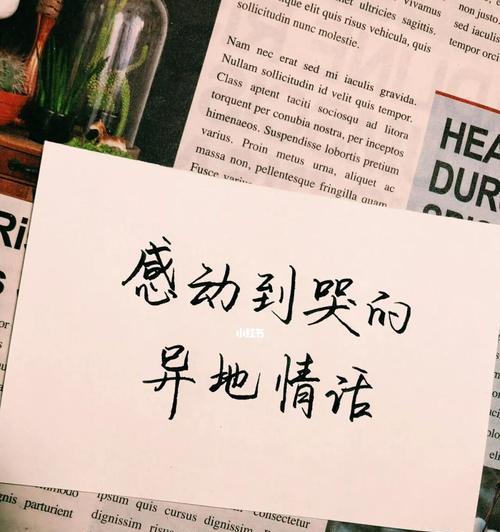 ultricies sagittis.
eget elit quis risus vehicula, quis
sollicitudin nunc molestie.
non justo
sed iacu
tempor orci
Nam nec erat sed mi iaculis gravida.
Nullam sollicitudin id velit quis tempor.
Class aptent taciti sociosqu ad litora
torquent per conubia nostra, per inceptos
himenaeos. Suspendisse lobortis pretium
varius. Proin metus urna, aliquet ac
massa non, pellentesque fringilla quam
Fusce
HEA
DUR
感动到哭的
小红书
异地情话
commodo
parturient
ipsum quis cursus dignissim
dignissim